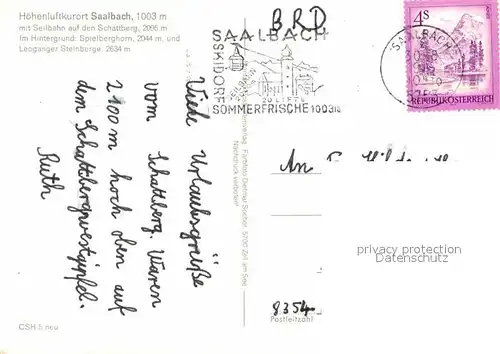 Höhenluftkurort Saalbach, 1003 m
mit Seilbahn auf den Schattberg, 2095 m
Im Hintergrund: Spielberghorn, 2044 m, und
Leoganger Steinberge, 2634 m
BRD
SAALBACH
SKIDORF
SEILBAHN
20 LIFTE
SOMMERFRISCHE 1003m
SAALBACH
4S
REPUBLIK ÖSTERREICH
Viele Urlaubsgrüße
vom Schattberg. Waren
2100 m hoch oben auf
dem Schattbergwestgipfel.
Ruth
Farbfoto Dietmar Sochor 5700 Zell am See
Nachdruck verboten!
An
8354
Postleitzahl
privacy protection
Datenschutz
CSH 5 neu